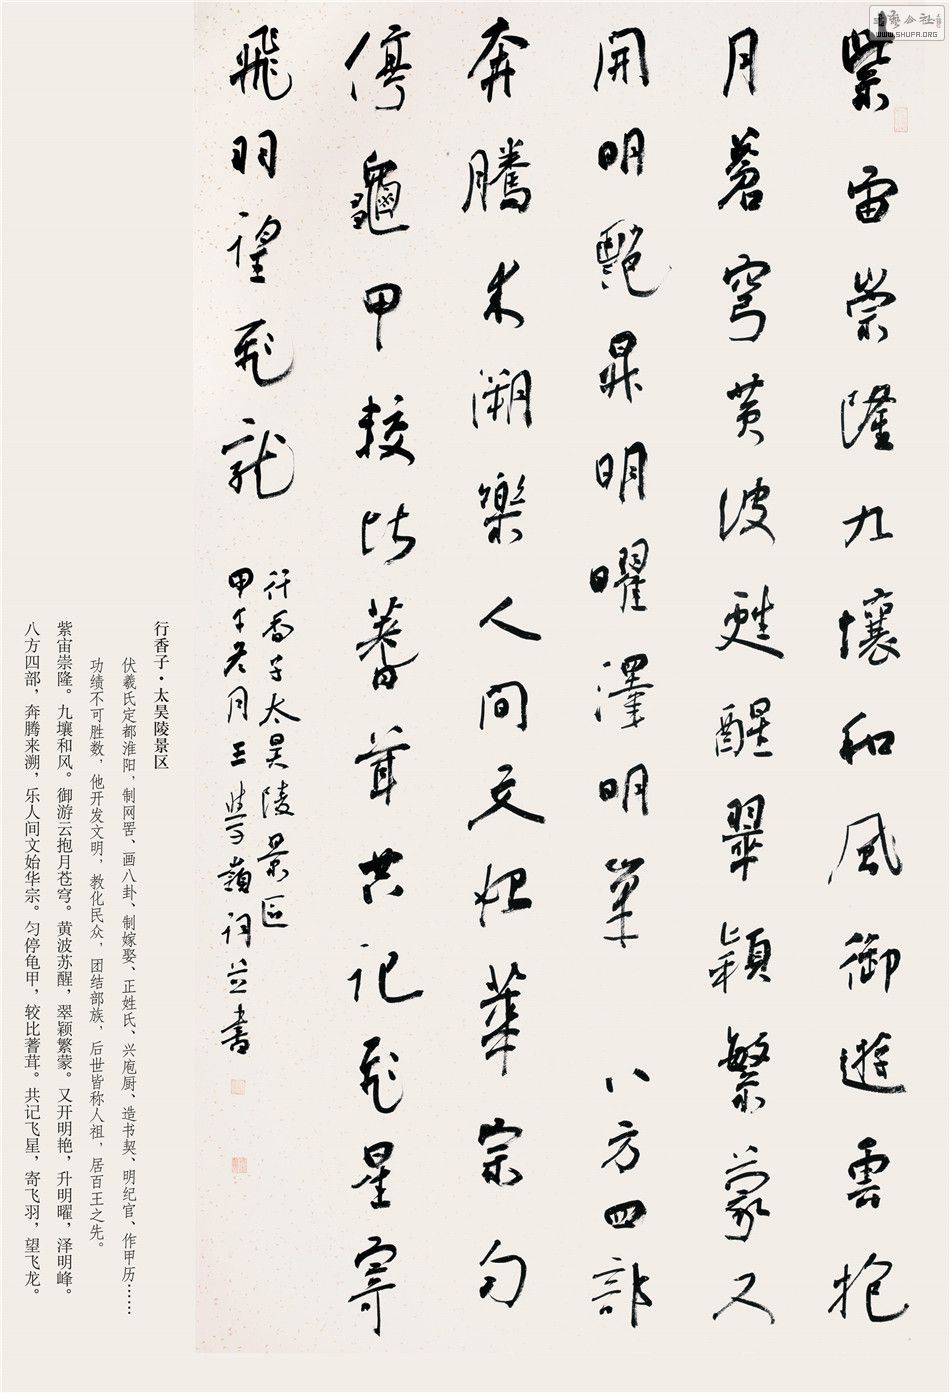 书艺公社
WWW.SHUFA.ORG
紫宙崇隆九壤和風御遊雲抱
月蒼穹黄波甦醒翠穎繁蒙又
開明艷昇明曜澤明峯 八方四部
奔騰来溯樂人間文始華宗勻
停龜甲較比蓍茸共記飛星寄
飛羽望飛龍
行香子太昊陵景區
甲午冬月王學嶺詞并書
行香子·太昊陵景区
伏羲氏定都淮阳，制网罟、画八卦、制嫁娶、正姓氏、兴庖厨、造书契、明纪官、作甲历……
功绩不可胜数，他开发文明，教化民众，团结部族，后世皆称人祖，居百王之先。
紫宙崇隆。九壤和风。御游云抱月苍穹。黄波苏醒，翠颖繁蒙。又开明艳，升明曜，泽明峰。
八方四部，奔腾来溯，乐人间文始华宗。匀停龟甲，较比蓍茸。共记飞星，寄飞羽，望飞龙。